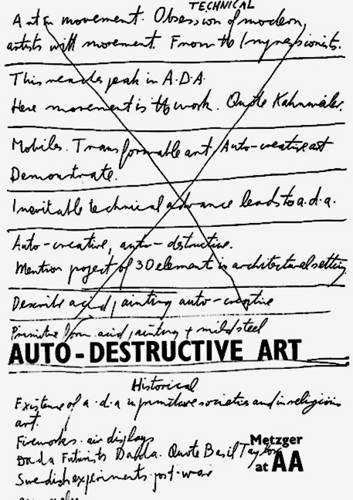 TECHNICAL
Art in movement. Obsession of modern,
artists with movement. From the Impressionists.
This reaches peak in A.D.A.
Here movement is the work. Quote Kahnweiler.
Mobiles. Transformable art, Auto-creative art
Demonstrate.
Inevitable technical advance leads to a.d.a.
Auto-creative, auto-destructive.
Mention project of 3D element in architectural setting
Describe acid painting auto-creative
Primitive form acid painting + mild steel
AUTO-DESTRUCTIVE ART
Historical
Existence of a.d.a in primitive societies and in religious
art.
Fireworks. air displays
Dada Futurists Dada. Quote Basil Taylor
Swedish experiments post-war
Metzger
at AA